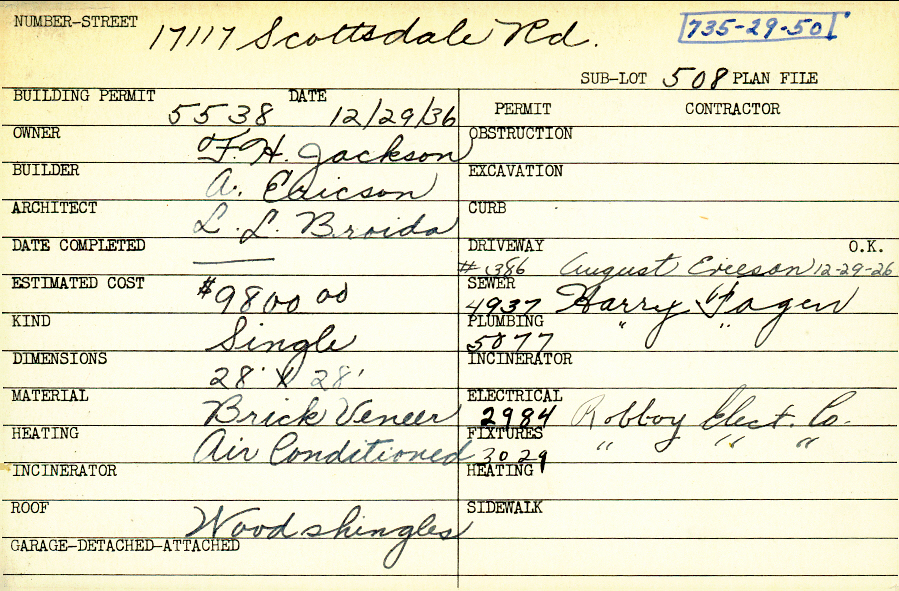 NUMBER-STREET 17117 Scottsdale Rd. 735-29-50
SUB-LOT 508 PLAN FILE
BUILDING PERMIT 5538 DATE 12/29/36
PERMIT CONTRACTOR
OWNER F. H. Jackson
OBSTRUCTION
BUILDER A. Ericson
EXCAVATION
ARCHITECT L. L. Broida
CURB
DATE COMPLETED ——
DRIVEWAY #1386 August Ericson 12-29-26 O.K.
ESTIMATED COST $9800 00
SEWER 4937 Harry Fagen
KIND Single
PLUMBING 5077 " "
DIMENSIONS 28' X 28'
INCINERATOR
MATERIAL Brick Veneer
ELECTRICAL 2984 Robboy Elect. Co.
HEATING Air Conditioned
FIXTURES 3029 " " "
INCINERATOR
HEATING
ROOF Wood shingles
SIDEWALK
GARAGE-DETACHED-ATTACHED